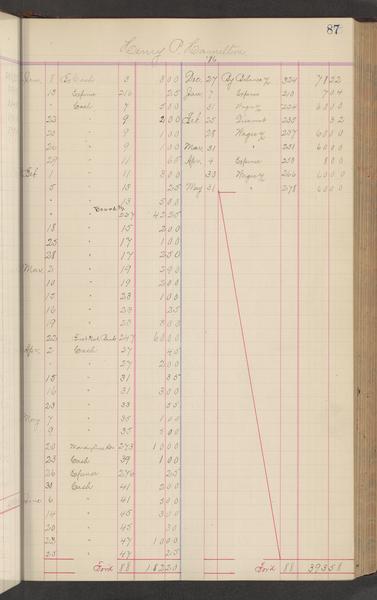 87
Henry P. Hamilton
'86
Jan. 8 To Cash 3 300 Dec. 27 By Balance 324 7822
13 Expense 216 25 Jan. 7 Expense 210 704
" Cash 7 500 31 Wages 224 6000
22 " 9 200 Feb. 25 Discount 235 32
" " 9 100 28 Wages 237 6000
26 " 9 100 Mar. 31 " 251 6000
29 " 11 65 Apr. 4 Expense 253 800
Feb. 1 " 11 300 Wages 266 6000
5 " 13 25 May 31 " 278 6000
" " 13 500
" 227 4225
18 " 15 200
25 " 17 100
28 " 17 250
Mar. 2 " 19 290
10 " 19 200
15 " 23 100
16 " 23 25
19 " 23 300
22 247 6000
Apr. 2 Cash 27 45
" " 27 200
15 " 31 35
16 " 31 300
23 " 33 55
May 7 " 35 100
9 " 35 500
20 273 1000
23 Cash 39 100
26 Expense 276 25
31 Cash 41 200
June 6 " 41 500
14 " 45 300
20 " 45 30
23 " 47 1000
25 " 47 25
Ford 88 18220 Ford 88 39358